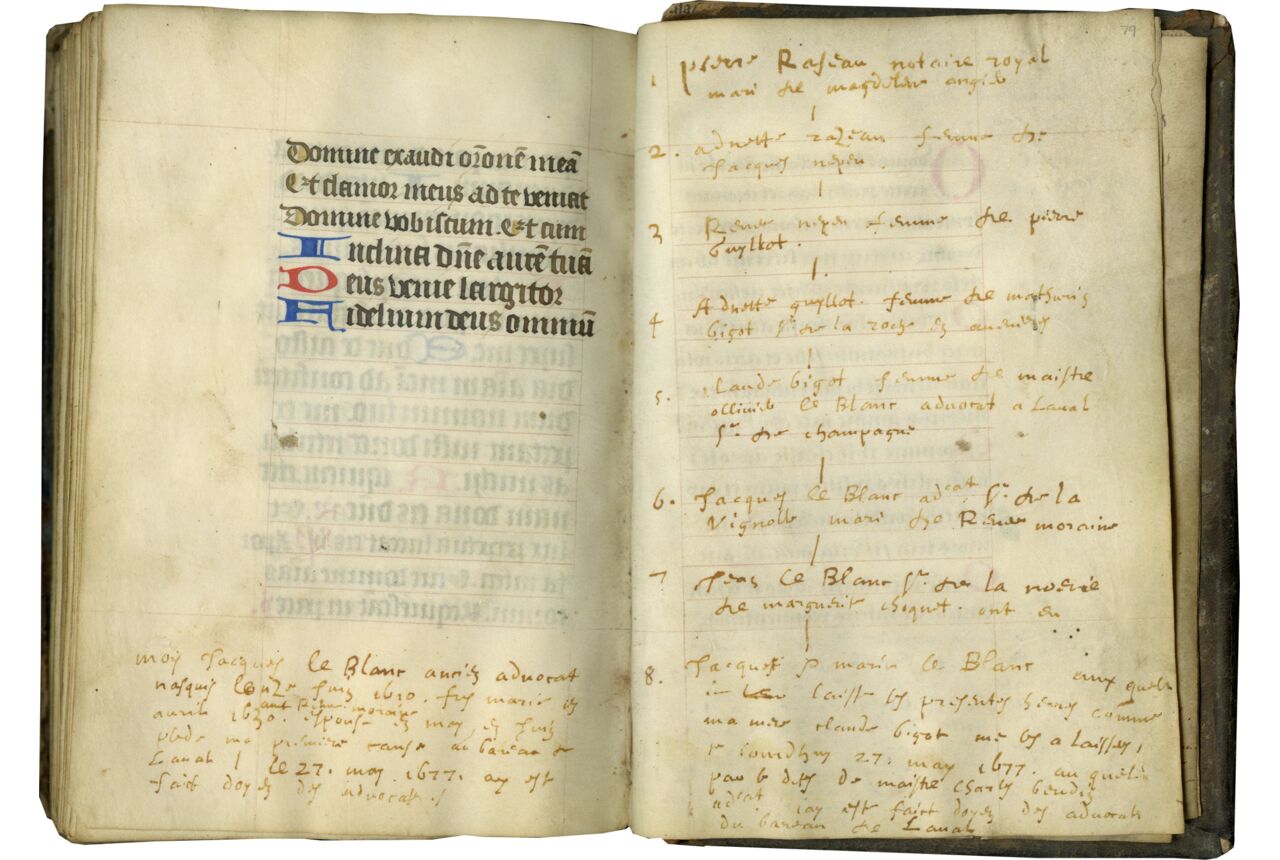 Domine exaudi or̄onē meā
Et clamor meus ad te veniat
Domine vobiscum. Et cum
Inclina dn̄e aurē tuā
Deus venie largitor
Fidelium deus omniū
moy Jacques le Blanc ancien advocat
nasquis le unze Juin 1610. fus marié en
avril 1630. espousé
plede ma premiere cause au bareau de
Laval / le 27. may 1677. ay esté
faict doyen des advocats /
79
1 pierre Raseau notaire royal
mari de magdelene
2. adnette razeau femme de
Jacques nepeu.
3 Renee nepeu femme de pierre
Guyllot.
4 Adnette guyllot. femme de mathurin
bigot Sr. de la roche
5. claude bigot femme de maistre
ollivier le Blanc advocat a Laval
Sr. de champagne
6. Jacques le Blanc adcat. Sr. de la
Vignolle mari de Renee moraine
7 Jean le Blanc Sr. de la noërie
de marguerite choquet. ont eu
8. Jacques & marin le Blanc aux quels
je laisse les presentes heures comme
ma mere claude bigot me les a laissees,
ce Jourdhuy 27. may 1677. au quel
par le deces de maistre charles
adcat jay esté faict doyen des advocats
du bareau de Laval